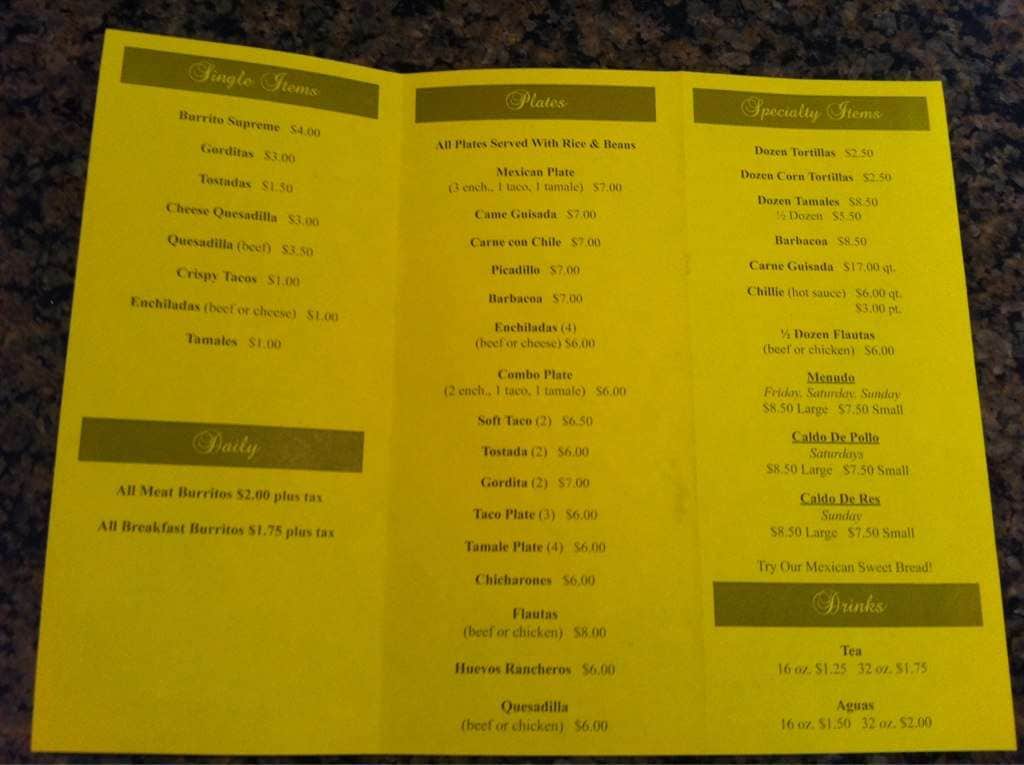 Single Items
Burrito Supreme $4.00
Gorditas $3.00
Tostadas $1.50
Cheese Quesadilla $3.00
Quesadilla (beef) $3.50
Crispy Tacos $1.00
Enchiladas (beef or cheese) $1.00
Tamales $1.00
Daily
All Meat Burritos $2.00 plus tax
All Breakfast Burritos $1.75 plus tax
Plates
All Plates Served With Rice & Beans
Mexican Plate
(3 ench., 1 taco, 1 tamale) $7.00
Came Guisada $7.00
Carne con Chile $7.00
Picadillo $7.00
Barbacoa $7.00
Enchiladas (4)
(beef or cheese) $6.00
Combo Plate
(2 ench., 1 taco, 1 tamale) $6.00
Soft Taco (2) $6.50
Tostada (2) $6.00
Gordita (2) $7.00
Taco Plate (3) $6.00
Tamale Plate (4) $6.00
Chicharones $6.00
Flautas
(beef or chicken) $8.00
Huevos Rancheros $6.00
Quesadilla
(beef or chicken) $6.00
Specialty Items
Dozen Tortillas $2.50
Dozen Corn Tortillas $2.50
Dozen Tamales $8.50
½ Dozen $5.50
Barbacoa $8.50
Carne Guisada $17.00 qt.
Chillie (hot sauce) $6.00 qt.
$3.00 pt.
½ Dozen Flautas
(beef or chicken) $6.00
Menudo
Friday, Saturday, Sunday
$8.50 Large $7.50 Small
Caldo De Pollo
Saturdays
$8.50 Large $7.50 Small
Caldo De Res
Sunday
$8.50 Large $7.50 Small
Try Our Mexican Sweet Bread!
Drinks
Tea
16 oz. $1.25 32 oz. $1.75
Aguas
16 oz. $1.50 32 oz. $2.00